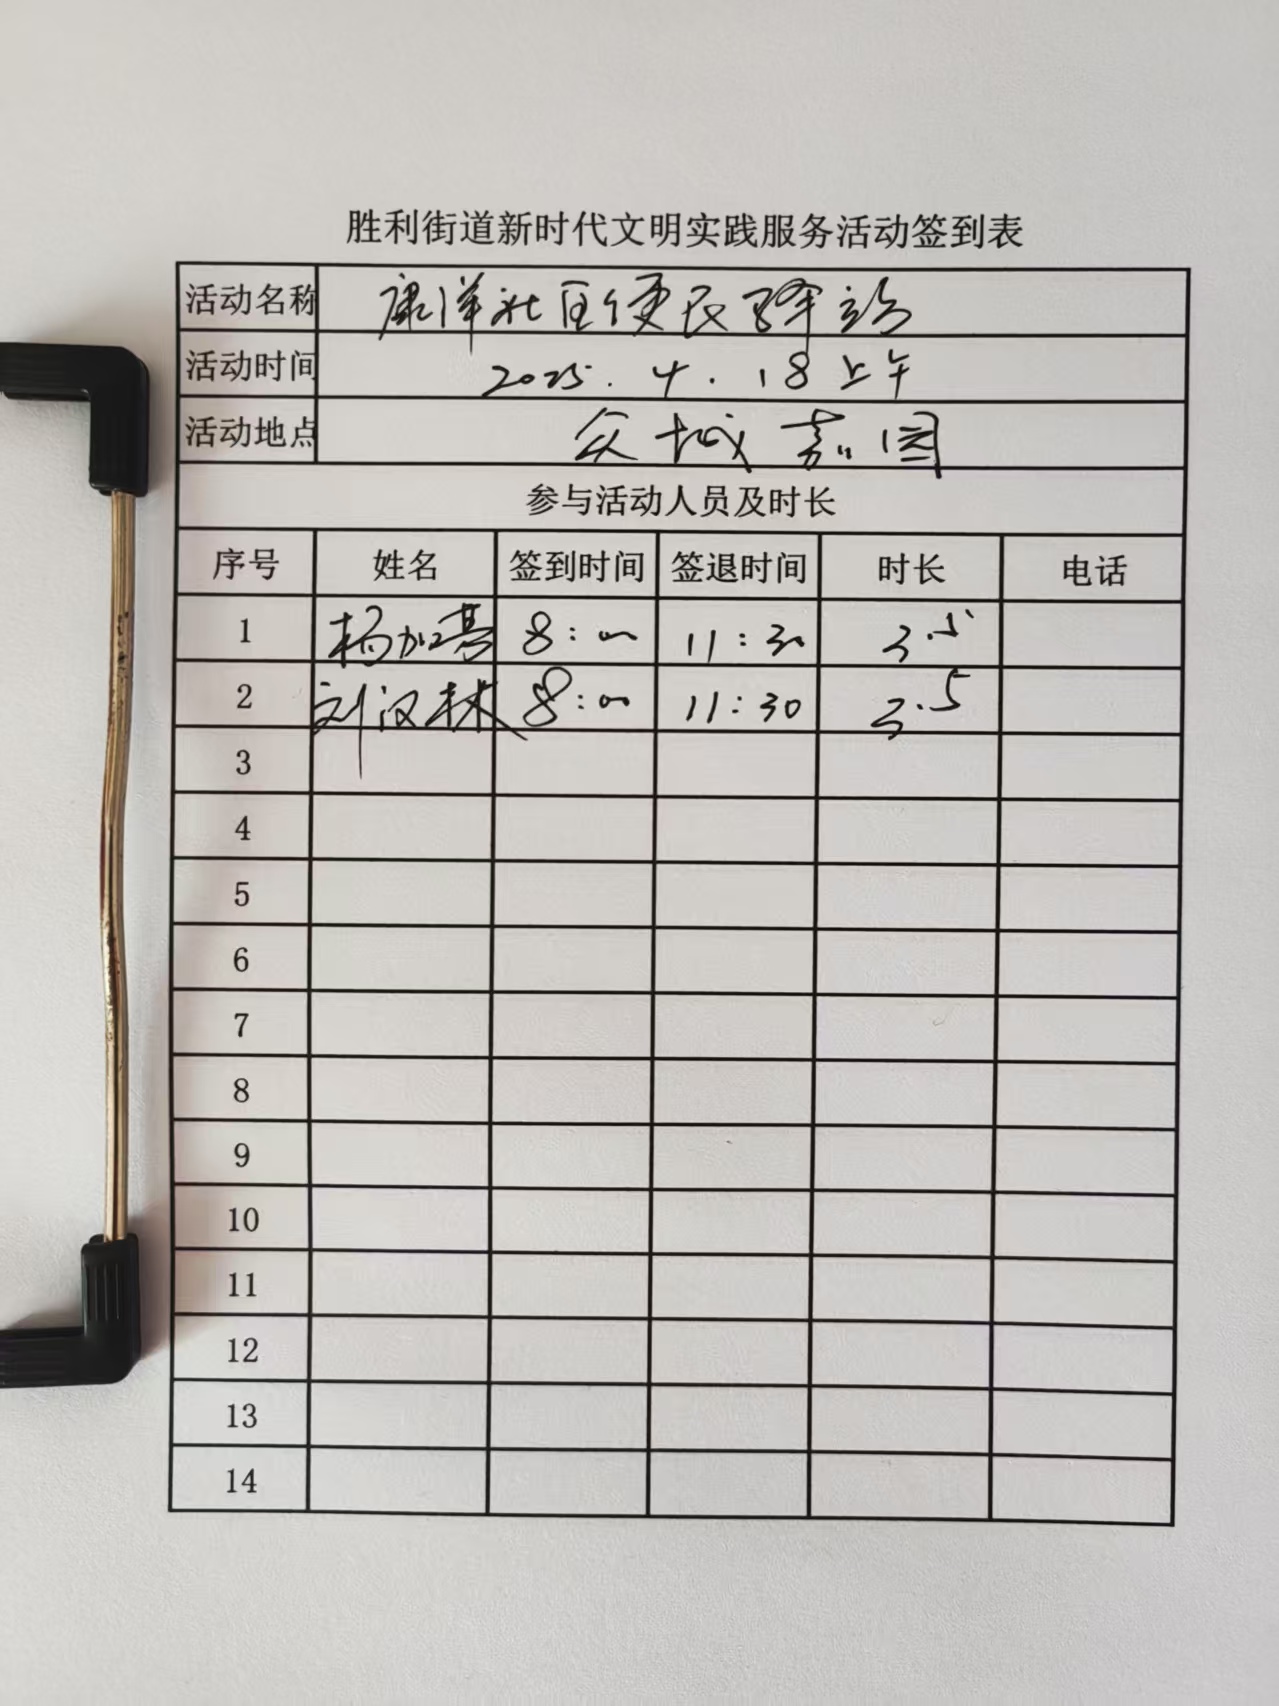 胜利街道新时代文明实践服务活动签到表
活动名称 康洋社区便民驿站
活动时间 2025.4.18上午
活动地点 众城嘉园
参与活动人员及时长
序号 姓名 签到时间 签退时间 时长 电话
1 杨加 8:00 11:30 3.5
2 刘汉林 8:00 11:30 3.5
3
4
5
6
7
8
9
10
11
12
13
14